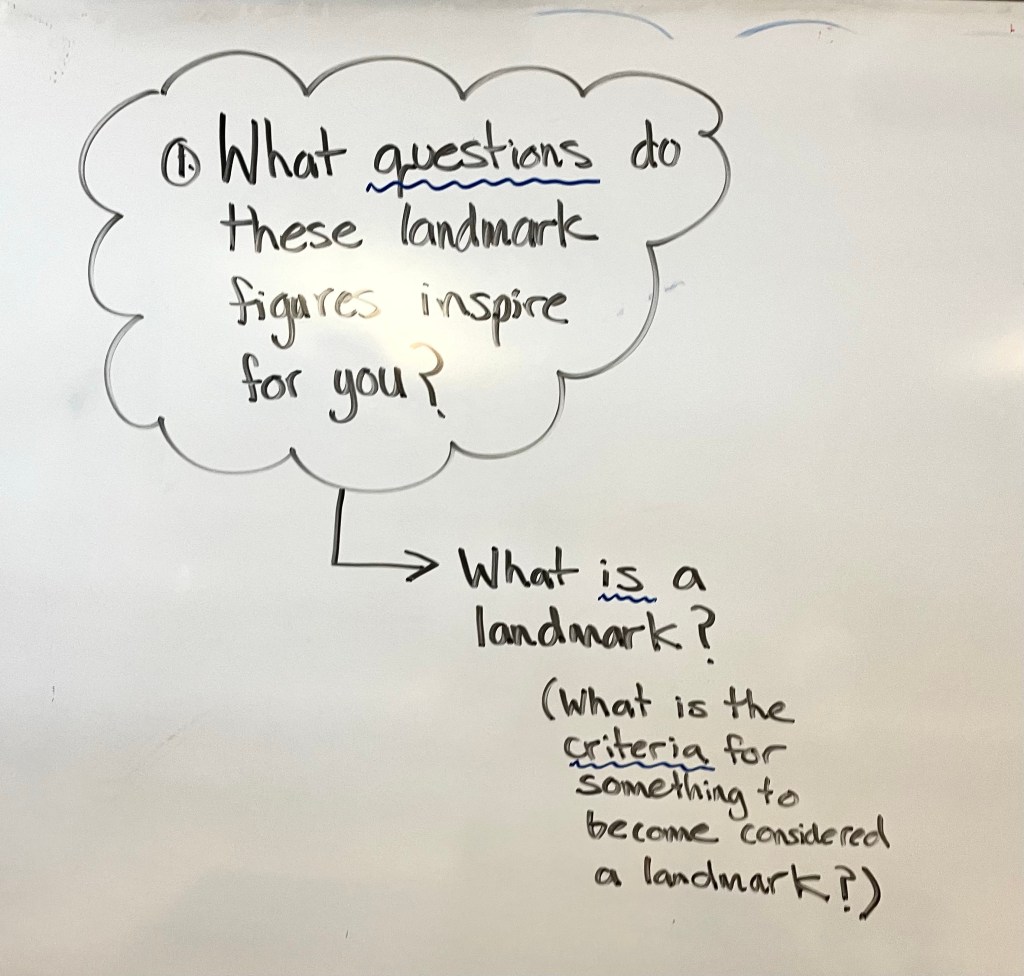 ①. What questions do
these landmark
figures inspire
for you?
What is a
landmark?
(What is the
criteria for
something to
become considered
a landmark?)